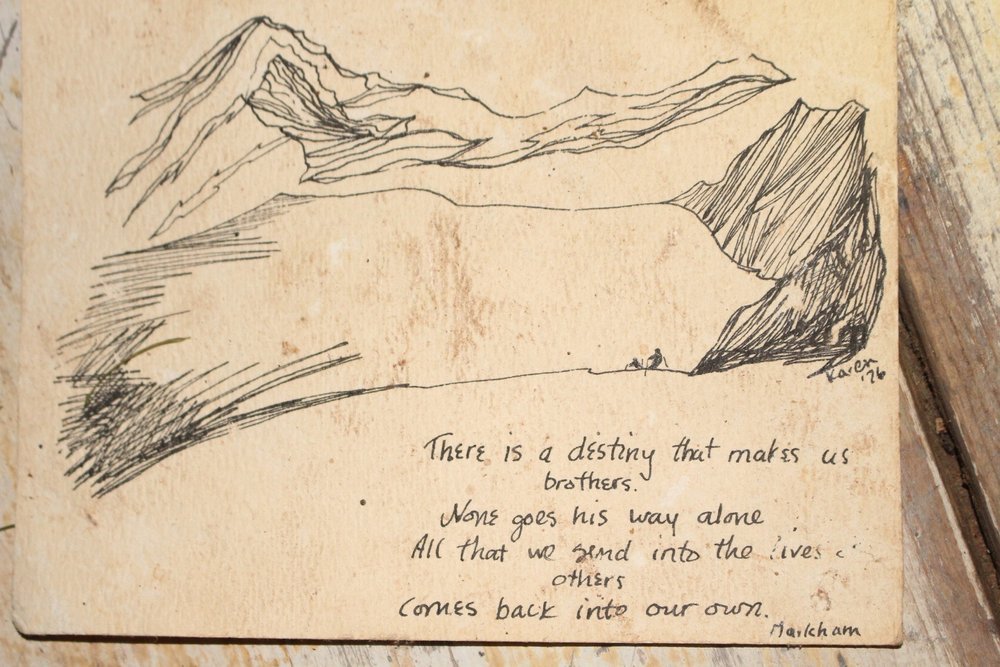 Karen
'76
There is a destiny that makes us
brothers.
None goes his way alone
All that we send into the lives
others
Comes back into our own.
Markham